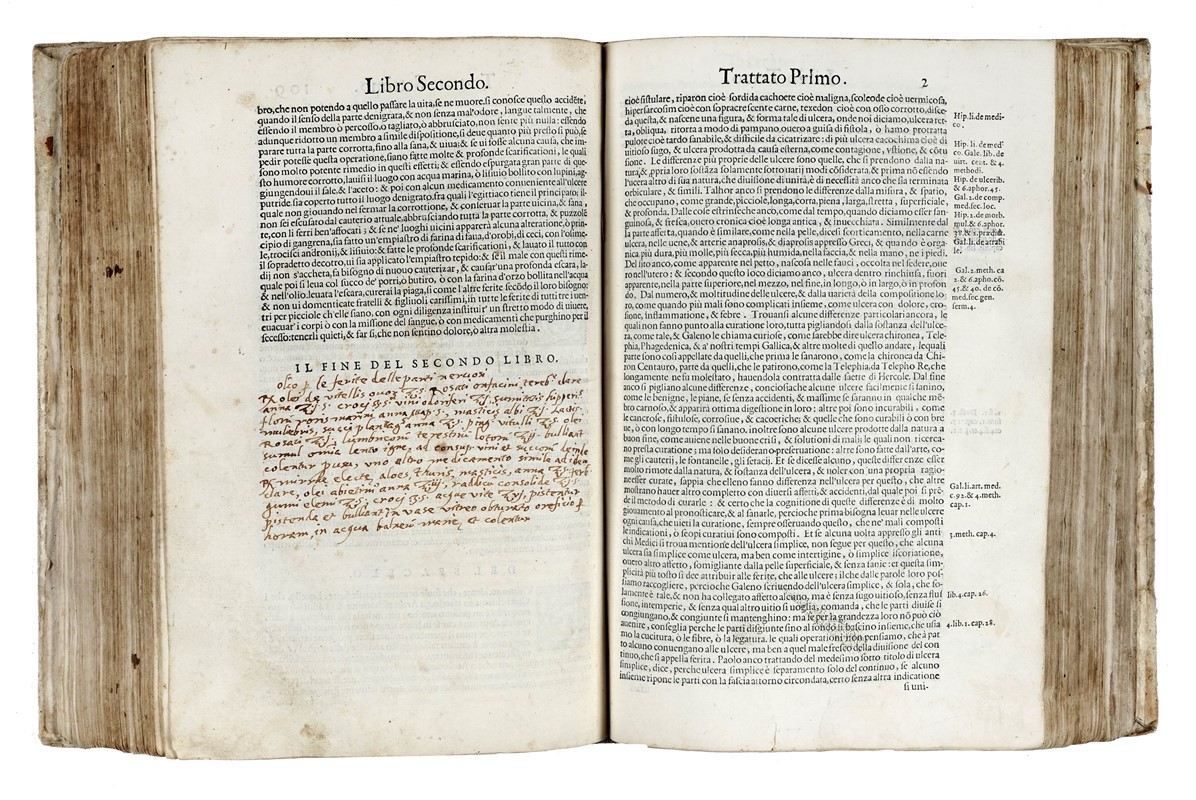 Libro Secondo.
bro, che non potendo a quello passare la uita, se ne muore. si conosce questo accidẽte,
quando il senso della parte denigrata, & non senza mal'odore, langue talmente, che
essendo il membro ò percosso, o tagliato, ò abbrusciato, non sente più nulla: essendo
adunque ridotto un membro a simile dispositione, si deue quanto più presto si può, se
parare tutta la parte corrotta, fino alla sana, & uiua: & se ui fosse alcuna causa, che im-
pedir potesse questa operatione, siano fatte molte & profonde scarificationi, le quali
sono molto potente rimedio in questi effetti; & essendo espurgata gran parte di que-
sto humore corrotto, lauisi il luogo con acqua marina, ò lisciuio bollito con lupini, ag-
giungendoui il sale, & l'aceto: & poi con alcun medicamento conueniente all'ulcere
putride, sia coperto tutto il luogo denigrato, fra quali l'egittiaco tiene il principato: il-
quale non giouando nel fermar la corrottione, & conseruar la parte uicina, & sana,
non sei escusato dal cauterio attuale, abbrusciando tutta la parte corrotta, & puzzolẽ
te, con li ferri ben'affocati; & se ne' luoghi uicini apparerà alcuna alteratione, ò prin-
cipio di gangrena, sia fatto un'empiastro di farina di faua, d'orobi, di ceci, con l'osime-
le, trocisci andronij, & lisciuio: & fatte le profonde scarificationi, & lauato il tutto con
il sopradetto decotto, ui sia applicato l'empiastro tepido: & se il male con questi rime-
dij non s'accheta, fa bisogno di nuouo cauterizar, & causar' una profonda escara, la-
quale poi si leua col succo de' porri, ò butiro, ò con la farina d'orzo bollita nell'acqua
& nell'olio. leuata l'escara, curerai la piaga, sì come l'altre ferite secõdo il loro bisogno:
& non ui domenticate fratelli & figliuoli carissimi, in tutte le ferite di tutti tre i uen-
tri per picciole ch'elle siano, con ogni diligenza instituir' un stretto modo di uiuere,
euacuar' i corpi ò con la missione del sangue, ò con medicamenti che purghino per il
secesso: tenerli quieti, & far sì, che non sentino dolore, ò altra molestia.
IL FINE DEL SECONDO LIBRO.
olio p. le ferite delle parti neruori
oleo de vitellis ouor. rosati onfacini, tereb. clare
anna croci vini odoriferi sumitatis hipperi
flori rorismarini anna masticis albi lactis
muliebris, succi plantag. anna ping. vitulli olei
Rosati lumbriconi terestriu lotorũ bulliant
simul omia lento igne, ad consup. vini et succoni deinde
colentur pura, uno altro medicamento simile ad idem
mirrhe electe, aloes, thuris, masticis, anna
clare, olei abietini anna raddicũ consolide
gumi elemi croci acque vite pistentur
pistanda et bulliant in vase vitreo obturato oreficio p.
horam, in acqua balneũ marie, et colentur
Trattato Primo. 2
cioè fistulare, riparon cioè sordida cachoete cioè maligna, scoleode cioè uermicosa,
hipersarcosim cioè con sopracrescente carne, texedon cioè con osso corrotto, disce-
da questa, & nascene una figura, & forma tale di ulcera, onde noi diciamo, ulcera ret-
ta, obliqua, ritorta a modo di pampano. ouero a guisa di fistola, ò hamo protratta
pulore cioè tardo sanabile, & difficile da cicatrizare: di più ulcera cacochima cioè di
uitioso sugo, & ulcera prodotta da causa esterna, come contagione, ustione, & cõtu
sione. Le differenze più proprie delle ulcere sono quelle, che si prendono dalla na-
tura, & propria loro sostãza solamente sotto uarij modi cõsiderata, & prima nõ essẽdo
l'ulcera altro di sua natura, che diuisione di unità, è di necessità anco che sia terminata
orbiculare, & simili. Talhor anco si prendono le differenze dalla misura, & spatio,
che occupano, come grande, picciole, longa, corta, piena, larga, stretta, superficiale,
& profonda. Dalle cose estrinseche anco, come dal tempo, quando diciamo esser san-
guinosa, & fresca, ouero cronica cioè longa antica, & inuecchiata. Similmente dal
la parte afferta, quando è similare, come nella pelle, dicesi scorticamento, nella carne
ulcera, nelle uene, & arterie anaprosis, & diaprosis appresso Greci, & quando è orga-
nica più dura, più molle, più secca, più humida, nella faccia, & nella mano, ne i piedi.
Dal sito anco, come apparente nel petto, nascosa nelle fauci, occolta nel sedere, oue
ro nell'utero: & secondo questo loco diciamo anco, ulcera dentro rinchiusa, fuori
apparente, nella parte superiore, nel mezzo, nel fine, in longo, ò in largo, ò in profon
do. Dal numero, & moltitudine delle ulcere, & dalla uarietà della compositione lo
ro, come quando più mali sono complicati insieme, come ulcera con dolore, ero-
sione, inflammatione, & febre. Trouansi alcune differenze particolari ancora, le
quali non fanno punto alla curatione loro, tutta pigliandosi dalla sostanza dell'ulce-
ra, come tale, & Galeno le chiama curiose, come sarebbe dire ulcera chironea, Tele-
phia, Phagedenica, & a' nostri tempi Gallica, & altre molte di quello andare, lequali
parte sono così appellate da quelli, che prima le sanarono, come la chironea da Chi-
ron Centauro, parte da quelli, che le patirono, come la Telephia, da Telepho Re, che
longamente ne fu molestato, hauendola contratta dalle saette di Hercole. Dal fine
anco si pigliano alcune differenze, conciosiache alcune ulcere facilmente si sanino,
come le benigne, le piane, se senza accidenti, & massime se saranno in qualche mẽ-
bro carnoso, & apparirà ottima digestione in loro: altre poi sono incurabili, come
le cancrose, fistulose, corrosiue, & cacoeriche; & quelle che sono curabili ò con bre
ue, ò con longo tempo si sanano. inoltre sono alcune ulcere prodotte dalla natura a
buon fine, come auiene nelle buone crisi, & solutioni di mali; le quali non ricerca-
no presta curatione; ma solo desiderano preseruatione: altre sono fatte dall'arte, co-
me gli cauterij, le fontanelle, gli setacij. Et se dicesse alcuno, queste differenze esser
molto rimote dalla natura, & sostanza dell'ulcera, & uoler con una propria ragio-
nesser curate, sappia che elleno sanno differenza nell'ulcera per questo, che altre
mostrano hauer altro completto con diuersi affetti, & accidenti, dal quale poi si prẽ-
de il metodo di curarle: & certo che la cognitione di queste differenze è di molto
giouamento al pronosticare, & al sanarle, percioche prima bisogna leuar nelle ulcere
ogni causa, che uieti la curatione, sempre osseruando questo, che ne' mali composti
le indicationi, ò scopi curatiui sono composti. Et se alcuna uolta appresso gli anti-
chi Medici si troua mentione dell'ulcera simplice, non segue per questo, che alcuna
ulcera sia simplice come ulcera, ma ben come intertigine, ò simplice iscoriatione,
ouero altro affetto, somigliante dalla pelle superficiale, & senza sanie: et questa sim-
plicità più tosto si dee attribuir alle ferite, che alle ulcere; il che dalle parole loro pos-
siamo raccogliere, percioche Galeno scriuendo dell'ulcera simplice, & sola, che so-
lamente è tale, & non ha collegato affetto alcuno, ma è senza sugo uitioso, senza flus
sione, intemperie, & senza qual altro uitio si uoglia, comanda, che le parti diuise si
congiungano, & congiunte si mantenghino: ma se per la grandezza loro nõ può ciò
auenire, conseglia perche le parti disgiunte sino al fondo si bascino insieme, che usia
mo la cucitura, ò le fibre, ò la legatura. le quali operationi non pensiamo, che à pat
to alcuno conuengano alle ulcere, ma ben a quel male fresco della diuisione del con
tinuo, che si appella ferita. Paolo anco trattando del medesimo sotto titolo di ulcera
simplice, dice, perche ulcera simplice è separamento solo del continuo, se alcuno
insieme ripone le parti con la fascia attorno circondata, certo senza altra indicatione
si uni-
Hip. li. de medi-
co.
Hip. li. de med'
co. Gale. lib. de
uirt. cent. & 4.
methodi.
Hip. de ulcerib.
& 6. aphor. 45.
Gal. 2. de comp.
med. sec. loc.
Hip. 2. de morb.
mul. & 6. aphor.
Gal. li. de atrabi
le.
Gal. 2. meth. ca
2. & 6. apho. cõ.
45. & 40. de cõ.
med. sec. gen.
serm. 4.
Gal. li. art. med.
c. 92. & 4. meth.
cap. 1.
3. meth. cap. 4.
lib. 4. cap. 26.
4. lib. 1. cap. 28.